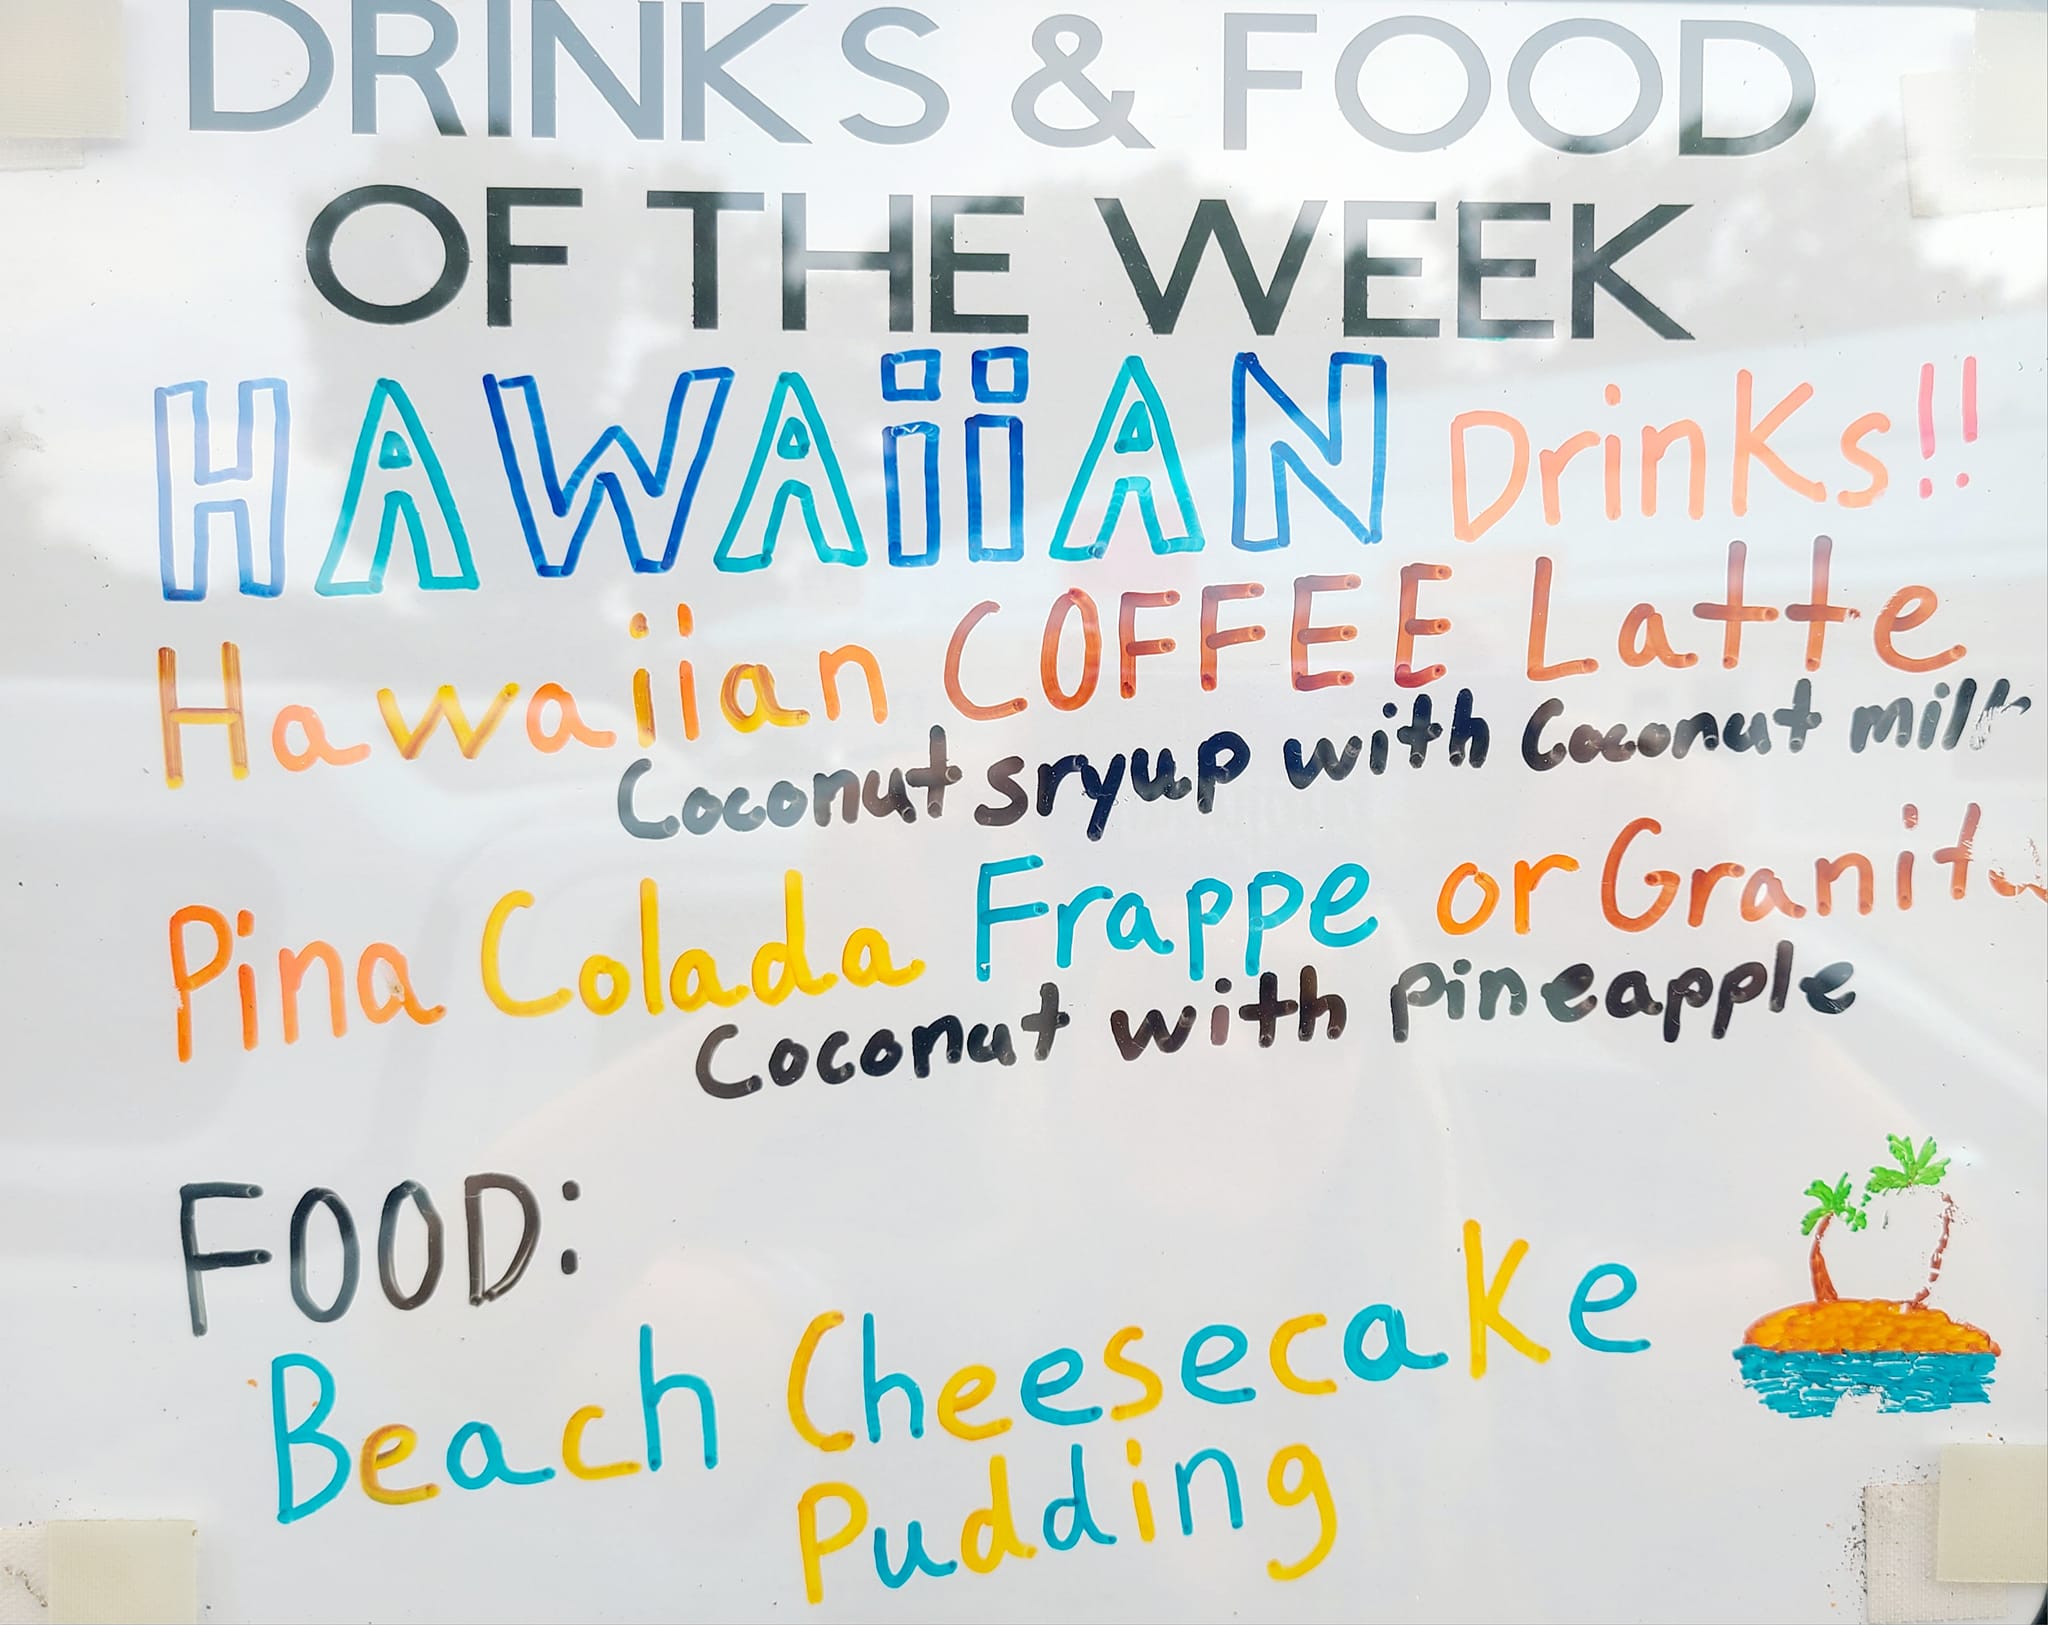 DRINKS & FOOD
OF THE WEEK
HAWAiiAN Drinks!!
Hawaiian COFFEE Latte
Coconut sryup with Coconut milk
Pina Colada Frappe or Granita
Coconut with pineapple
FOOD:
Beach Cheesecake
Pudding